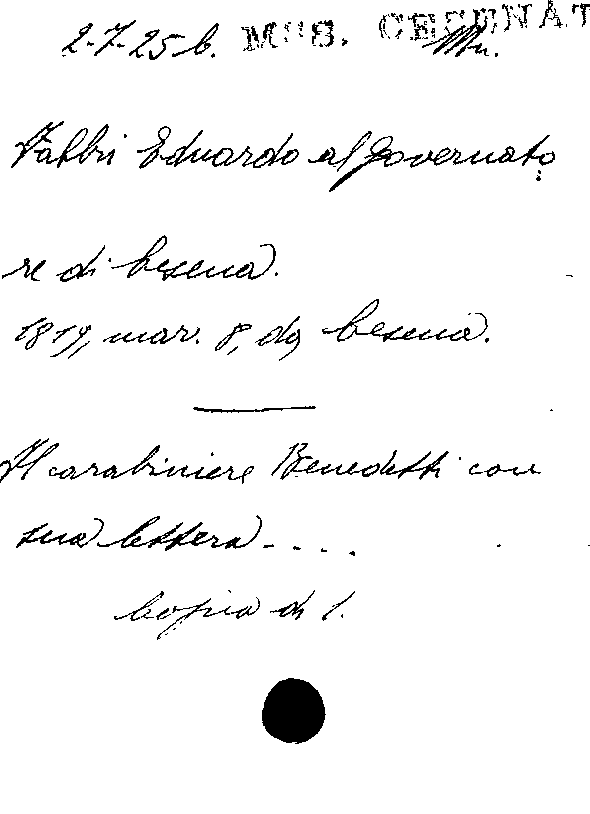 2-7-25 b. MSS. CESENAT Mn.
Fabbri Eduardo al Governato
re di Cesena.
1819, mar. 8, da Cesena.
Il carabiniere Benedetti con
sua lettera ....
Copia di l.